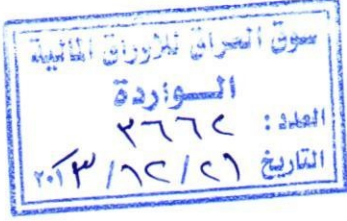 سوق العراق للاوراق المالية
الـــواردة
العدد : ٣٦٦٢
التاريخ ٢١/١٢/٢٠١٣